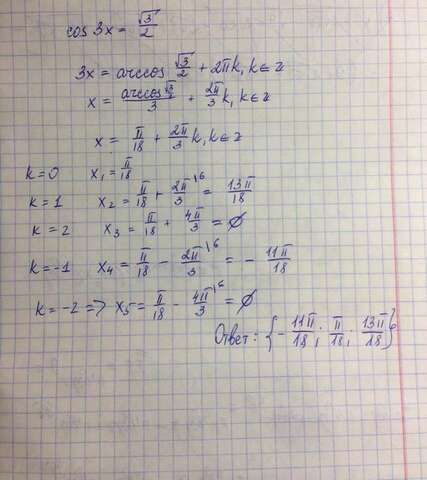 cos 3x = √3/2
3x = arccos √3/2 + 2πk, k ∈ z
x = arccos √3/2 / 3 + 2π/3 k, k ∈ z
x = π/18 + 2π/3 k, k ∈ z
k = 0 x₁ = π/18
k = 1 x₂ = π/18 + 2π/3 \6 = 13π/18
k = 2 x₃ = π/18 + 4π/3 = ∅
k = -1 x₄ = π/18 - 2π/3 \6 = - 11π/18
k = -2 => x₅ = π/18 - 4π/3 \6 = ∅
Ответ: {- 11π/18; π/18; 13π/18}